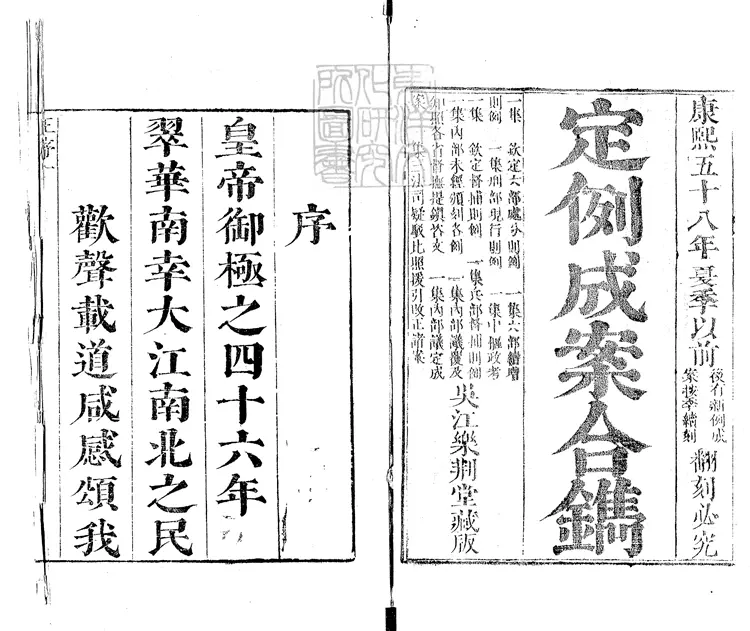 康熙五十八年夏季以前
後有新例成
案按季續刻
翻刻必究
定例成案合鐫
一集 欽定六部處分則例 一集六部續增
則例 一集刑部現行則例 一集中樞政考
一集 欽定督捕則例 一集兵部督捕則例
一集內部未經頒刻各例 一集內部議覆及
各省督撫提鎮咨文 一集內部議定成
案 集三法司疑駁比照援引改正諸案
吳江樂荊堂藏版
序
皇帝御極之四十六年
翠華南幸大江南北之民
歡聲載道咸感頌我